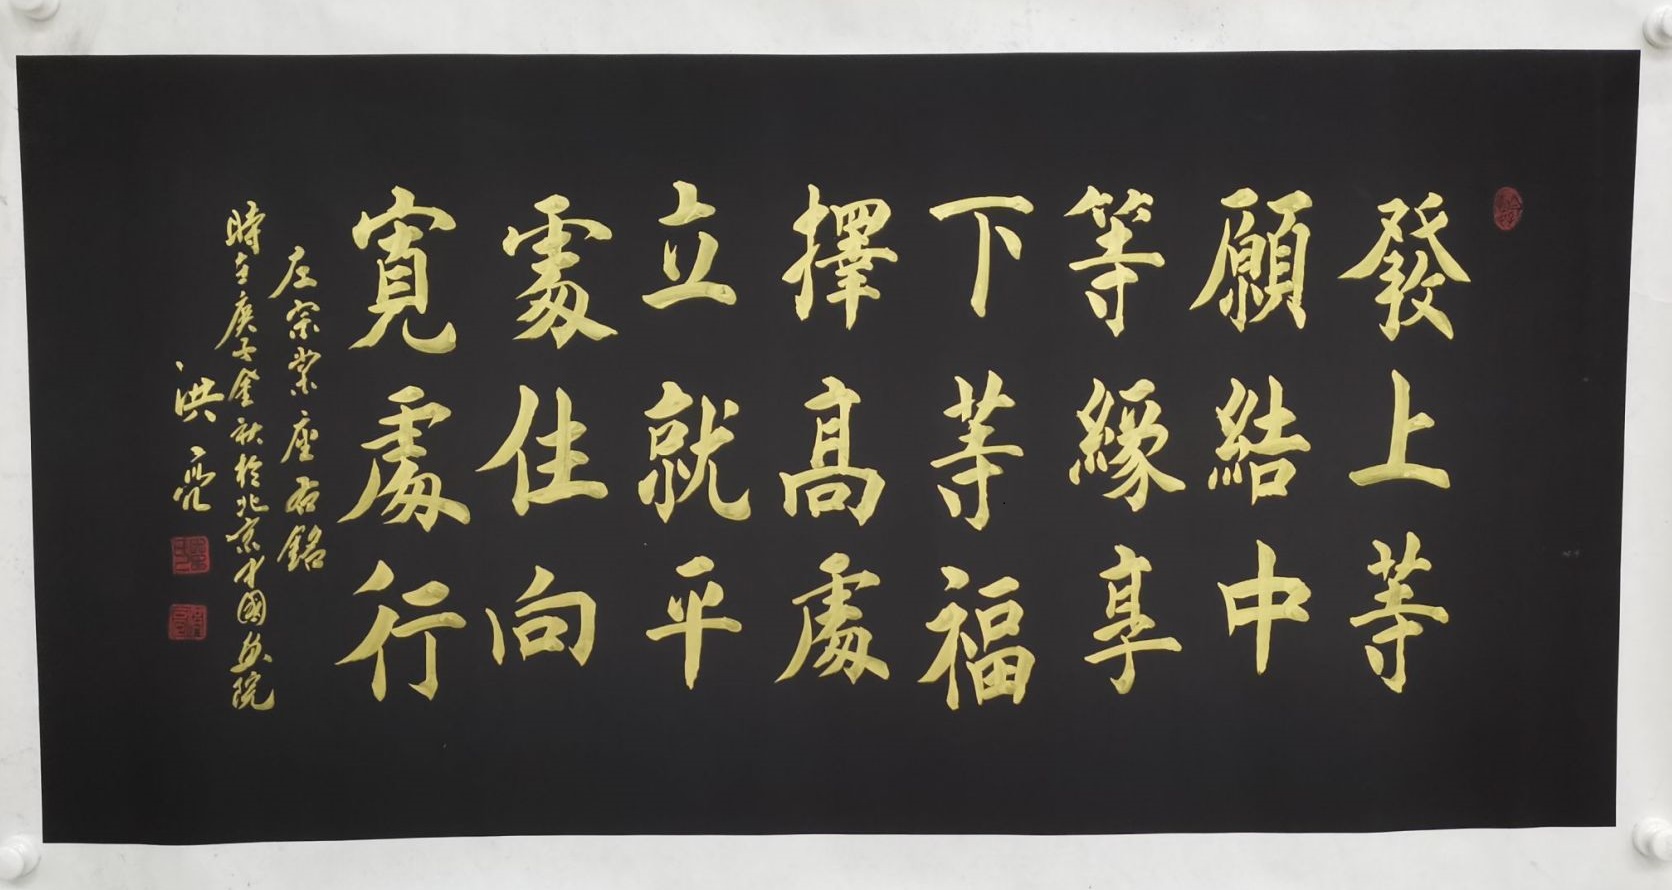 發上等
願結中
等緣享
下等福
擇高處
立就平
處住向
寬處行
左宗棠座右銘
時在庚子金秋於北京中國畫院
洪亮